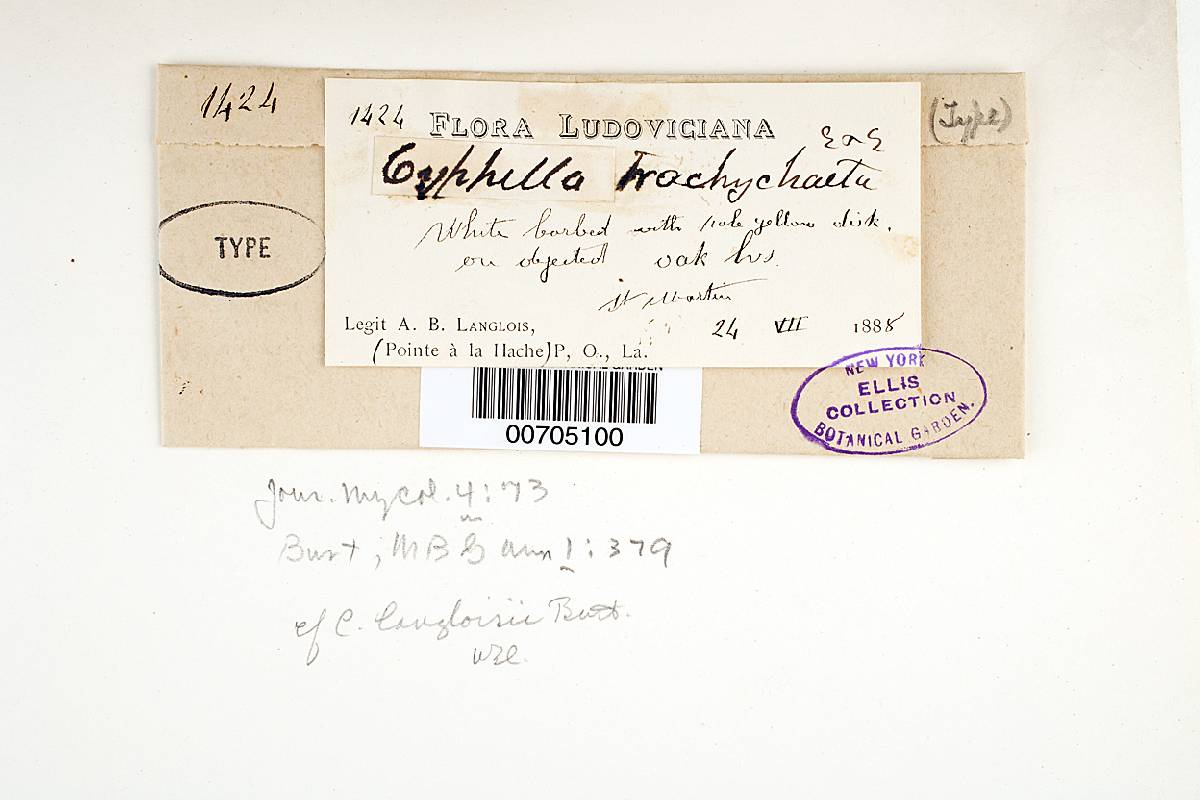 1424
(Type)
1424 FLORA LUDOVICIANA
E & E
Cyphella trachychaeta
White barbed with pale yellow disk,
on dejected oak lvs.
St Martin
Legit A. B. LANGLOIS, 24 VII 1888
(Pointe à la Hache) P, O., La.
TYPE
00705100
NEW YORK
ELLIS
COLLECTION
BOTANICAL GARDEN.
Jour. Mycol. 4:73
Burt, MBG Ann 1:379
cf C. Langloisii Burt.